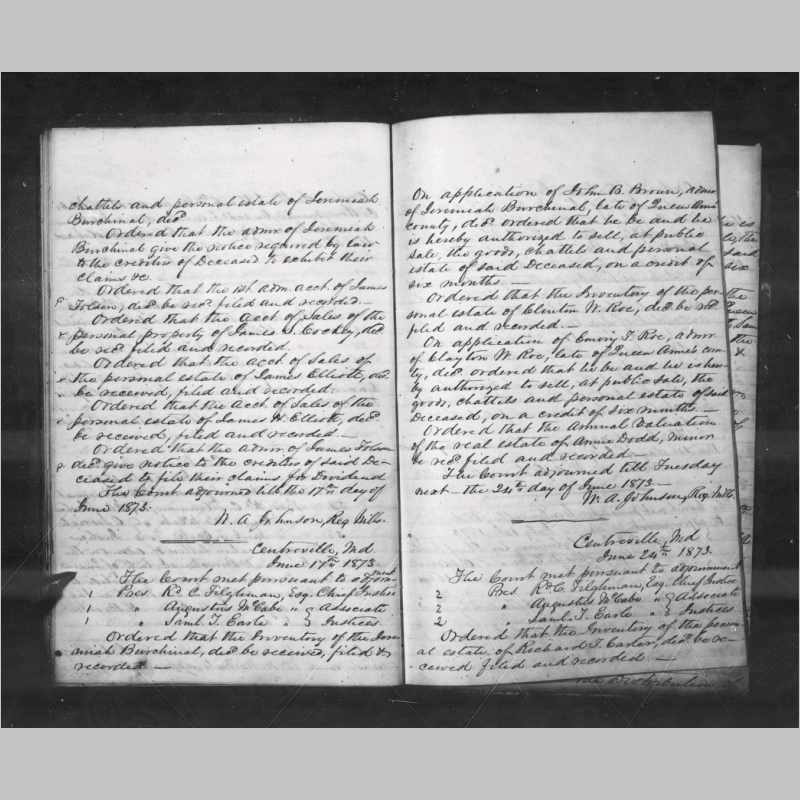 chattels and personal estate of Jeremiah
Burchinal, decd
Ordered that the admr of Jeremiah
Burchinal give the notice required by law
to the creditors of Deceased to exhibit their
claims &c.
Ordered that the 1st adm. acct. of James
Tolson, decd be recd filed and recorded.—
Ordered that the acct of Sales of the
personal property of James S. Cockey, decd
be recd filed and recorded.
Ordered that the acct of Sales of
the personal estate of James Elliott, decd
be received, filed and recorded.
Ordered that the acct. of Sales of the
personal estate of James W. Elliott, decd
be received, filed and recorded.—
Ordered that the admr. of James Tolson
decd give notice to the creditors of said De-
ceased to file their claims for Dividend
The Court adjourned till the 17th day of
June 1873.
W. A. Johnson, Reg. Wills.
Centreville, Md
June 17th 1873
The Court met pursuant to adjourn-
ment
1 Pres Rd C. Tilghman, Esq. Chief Justice
1 " Augustus McCabe " } Associate
1 " Saml. T. Earle " } Justices
Ordered that the Inventory of the Jere-
miah Burchinal, decd be received, filed &
recorded —
On application of John B. Brown, admr
of Jeremiah Burchinal, late of Queen Anns
County, decd ordered that he be and he
is hereby authorized to sell, at public
sale, the goods, chattels and personal
estate of said Deceased, on a credit of
six months —
Ordered that the Inventory of the per-
sonal estate of Clayton W. Roe, decd be recd
filed and recorded.—
On application of Emory T. Roe, admr
of Clayton W. Roe, late of Queen Anne's coun-
ty, decd ordered that he be and he is here-
by authorized to sell, at public sale, the
goods, chattels and personal estate of said
Deceased, on a credit of six months —
Ordered that the Annual Valuation
of the real estate of Annie Dodd, minor
be recd filed and recorded—
The Court adjourned till Tuesday
next — the 24th day of June 1873—
W. A. Johnson, Reg. Wills.
Centreville, Md
June 24th 1873.
The Court met pursuant to adjournment
2 Pres Rd C. Tilghman, Esq. Chief Justice
2 " Augustus McCabe " } Associate
2 " Saml. T. Earle " } Justices
Ordered that the Inventory of the person-
al estate of Richard T. Carter, decd be re-
ceived filed and recorded —